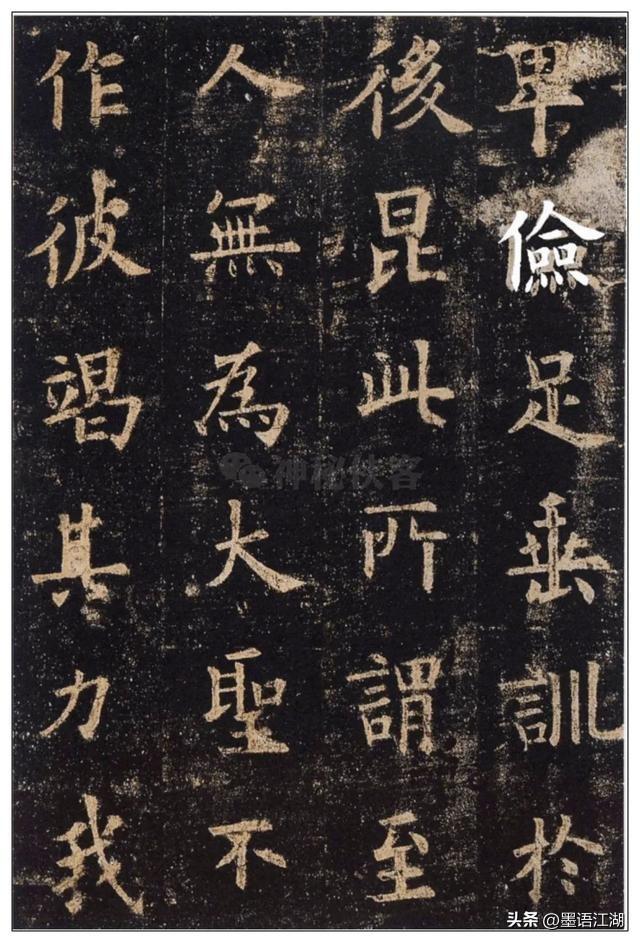 卑儉足垂訓於
後昆此所謂至
人無為大聖不
作彼竭其力我
神秘侠客
头条 @墨语江湖